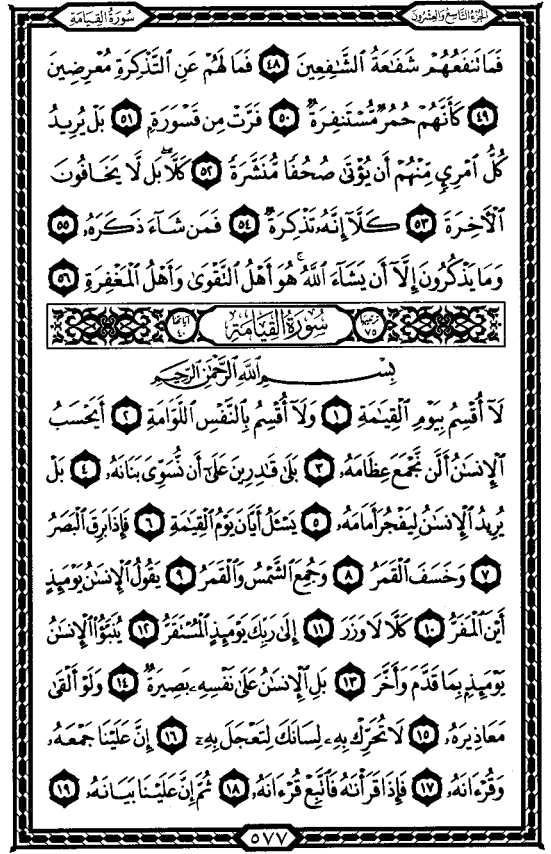 الجزء التاسع والعشرون
سورة القيامة
فَمَا تَنفَعُهُمْ شَفَاعَةُ الشَّافِعِينَ ٤٨ فَمَا لَهُمْ عَنِ التَّذْكِرَةِ مُعْرِضِينَ
٤٩ كَأَنَّهُمْ حُمُرٌ مُّسْتَنفِرَةٌ ٥٠ فَرَّتْ مِن قَسْوَرَةٍ ٥١ بَلْ يُرِيدُ
كُلُّ امْرِئٍ مِّنْهُمْ أَن يُؤْتَىٰ صُحُفًا مُّنَشَّرَةً ٥٢ كَلَّا ۖ بَل لَّا يَخَافُونَ
الْآخِرَةَ ٥٣ كَلَّا إِنَّهُ تَذْكِرَةٌ ٥٤ فَمَن شَاءَ ذَكَرَهُ ٥٥
وَمَا يَذْكُرُونَ إِلَّا أَن يَشَاءَ اللَّهُ ۚ هُوَ أَهْلُ التَّقْوَىٰ وَأَهْلُ الْمَغْفِرَةِ ٥٦
ترتيبها ٧٥ سُورَةُ القِيَامَةِ آياتها ٤٠
بِسْمِ اللَّهِ الرَّحْمَٰنِ الرَّحِيمِ
لَا أُقْسِمُ بِيَوْمِ الْقِيَٰمَةِ ١ وَلَا أُقْسِمُ بِالنَّفْسِ اللَّوَّامَةِ ٢ أَيَحْسَبُ
الْإِنسَٰنُ أَلَّن نَّجْمَعَ عِظَامَهُ ٣ بَلَىٰ قَٰدِرِينَ عَلَىٰ أَن نُّسَوِّيَ بَنَانَهُ ٤ بَلْ
يُرِيدُ الْإِنسَٰنُ لِيَفْجُرَ أَمَامَهُ ٥ يَسْـَٔلُ أَيَّانَ يَوْمُ الْقِيَٰمَةِ ٦ فَإِذَا بَرِقَ الْبَصَرُ
٧ وَخَسَفَ الْقَمَرُ ٨ وَجُمِعَ الشَّمْسُ وَالْقَمَرُ ٩ يَقُولُ الْإِنسَٰنُ يَوْمَئِذٍ
أَيْنَ الْمَفَرُّ ١٠ كَلَّا لَا وَزَرَ ١١ إِلَىٰ رَبِّكَ يَوْمَئِذٍ الْمُسْتَقَرُّ ١٢ يُنَبَّؤُا الْإِنسَٰنُ
يَوْمَئِذٍ بِمَا قَدَّمَ وَأَخَّرَ ١٣ بَلِ الْإِنسَٰنُ عَلَىٰ نَفْسِهِ بَصِيرَةٌ ١٤ وَلَوْ أَلْقَىٰ
مَعَاذِيرَهُ ١٥ لَا تُحَرِّكْ بِهِ لِسَانَكَ لِتَعْجَلَ بِهِ ١٦ إِنَّ عَلَيْنَا جَمْعَهُ
وَقُرْءَانَهُ ١٧ فَإِذَا قَرَأْنَٰهُ فَاتَّبِعْ قُرْءَانَهُ ١٨ ثُمَّ إِنَّ عَلَيْنَا بَيَانَهُ ١٩
٥٧٧